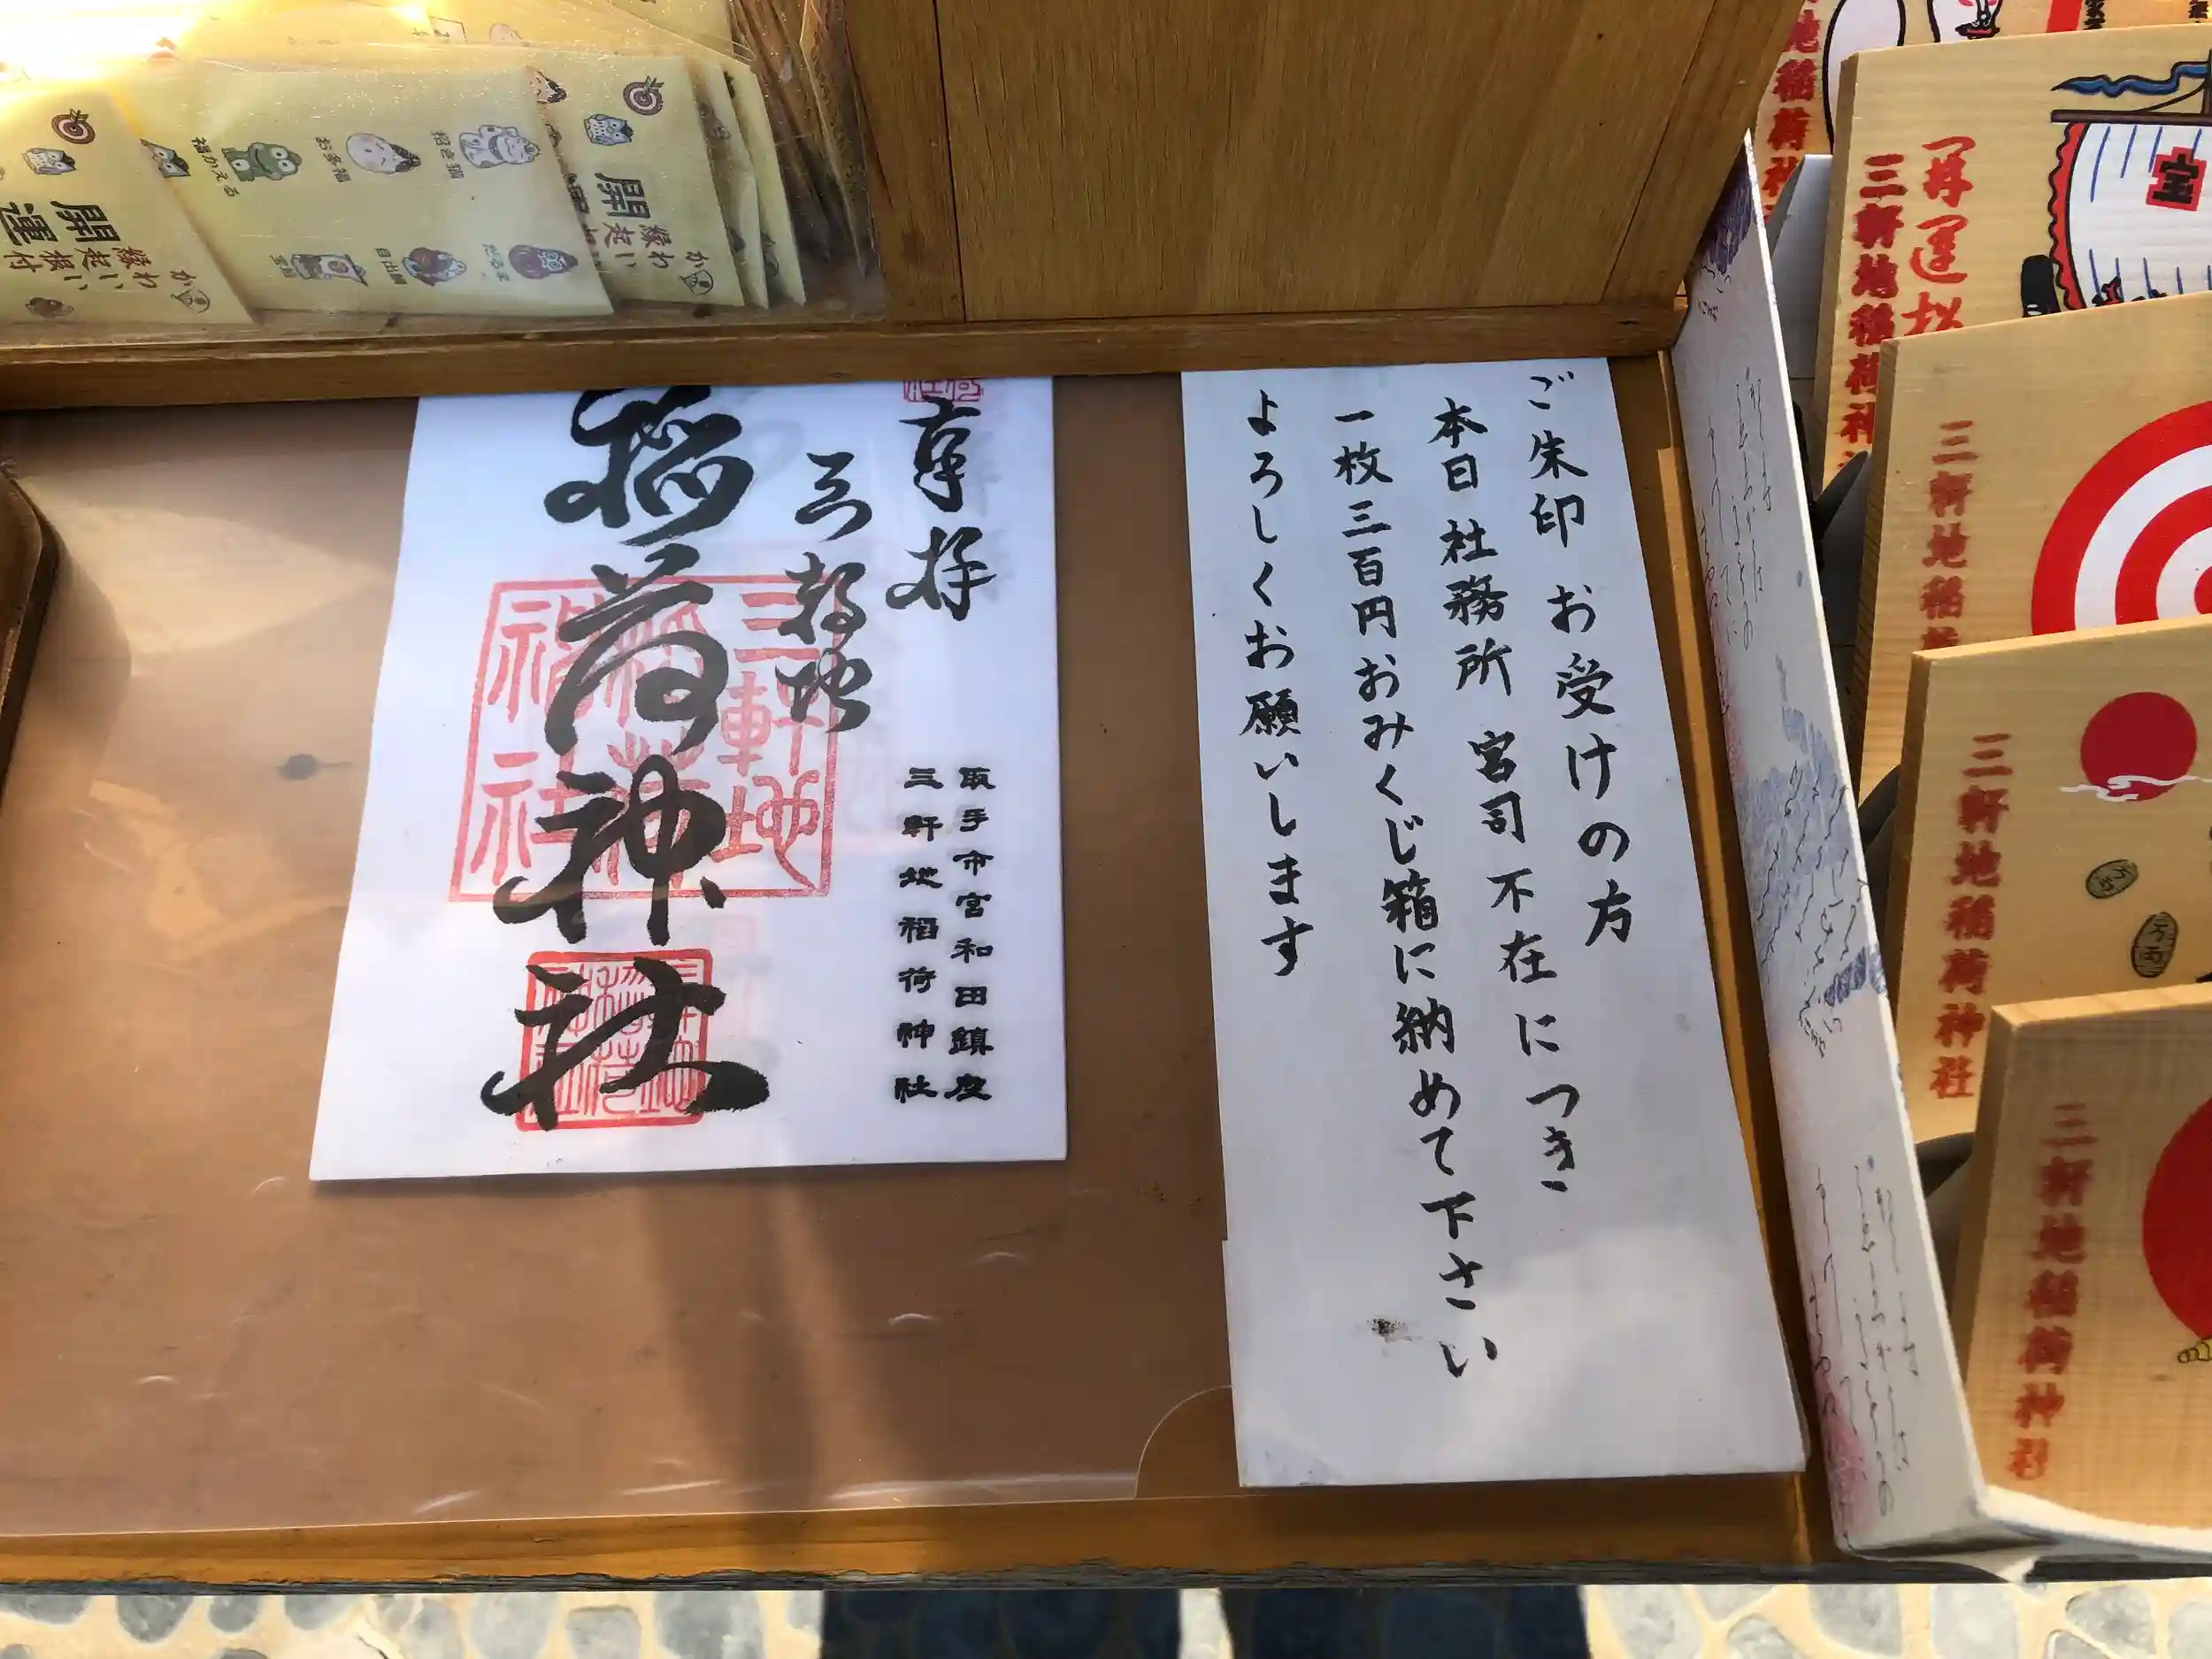 ご朱印 お受けの方
本日 社務所 宮司 不在 につき
一枚 三百円おみくじ箱に納めて下さい
よろしくお願いします
奉拝
三軒地
稲荷神社
取手市宮和田鎮座
三軒地稲荷神社
三軒地
稲荷神社
開運
かわいい
縁起根付
招き猫
お多福
福かえる
だるま
目出鯛
宝船
開
かわいい
縁起
開運招
三軒地稲荷神
宝
三軒地稲荷
三軒地稲荷神社
三軒地稲荷神社
地稲荷神